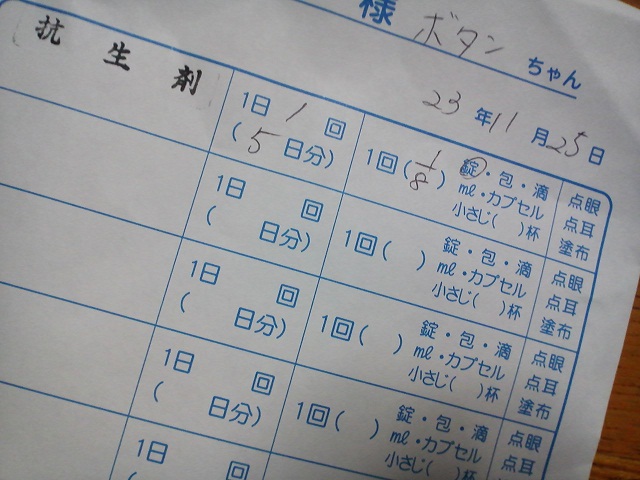 様 ボタン ちゃん
23 年 11 月 25 日
抗生剤
1日 1 回
( 5 日分)
1回( 1/8 ) 錠・包・滴
ml・カプセル
小さじ( )杯
点眼
点耳
塗布
1日 回
( 日分)
1回( ) 錠・包・滴
ml・カプセル
小さじ( )杯
点眼
点耳
塗布
1日 回
( 日分)
1回( ) 錠・包・滴
ml・カプセル
小さじ( )杯
点眼
点耳
塗布
1日 回
( 日分)
1回( ) 錠・包・滴
ml・カプセル
小さじ( )杯
点眼
点耳
1日 回